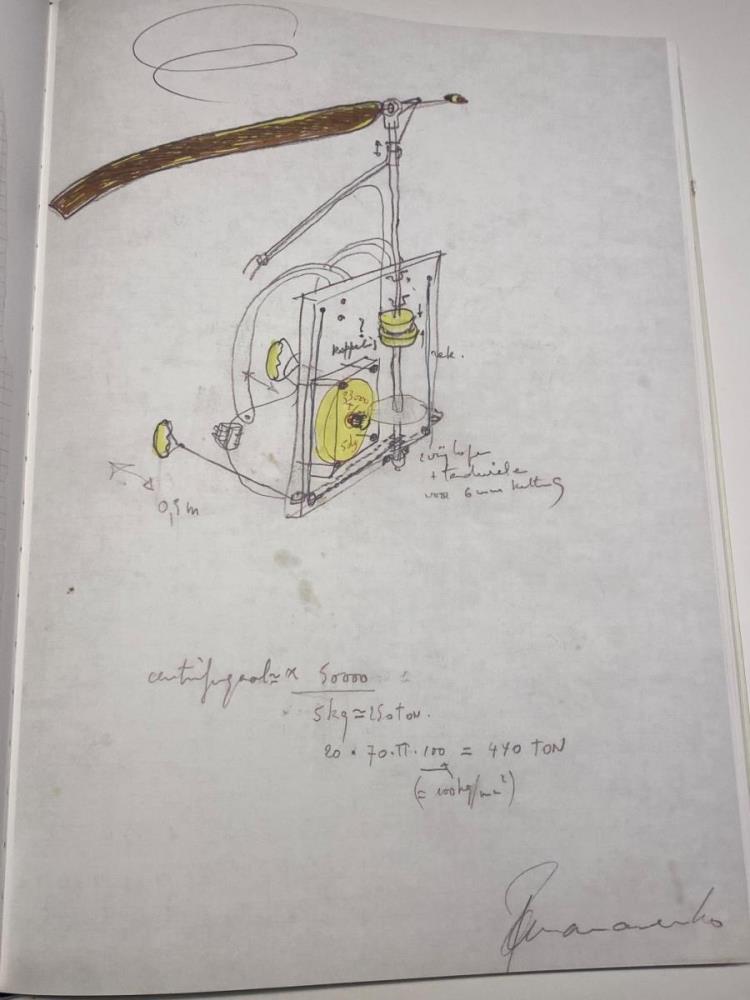 ?
koppeling
rek.
33000
5kg
+ tandwielen
voor 6 mm ketting
0,5 m
centrifugaal ≈ x 50000
5kg ≈ 250 TON.
20 • 70.π.100 = 440 TON
(= 100kg/mm²)